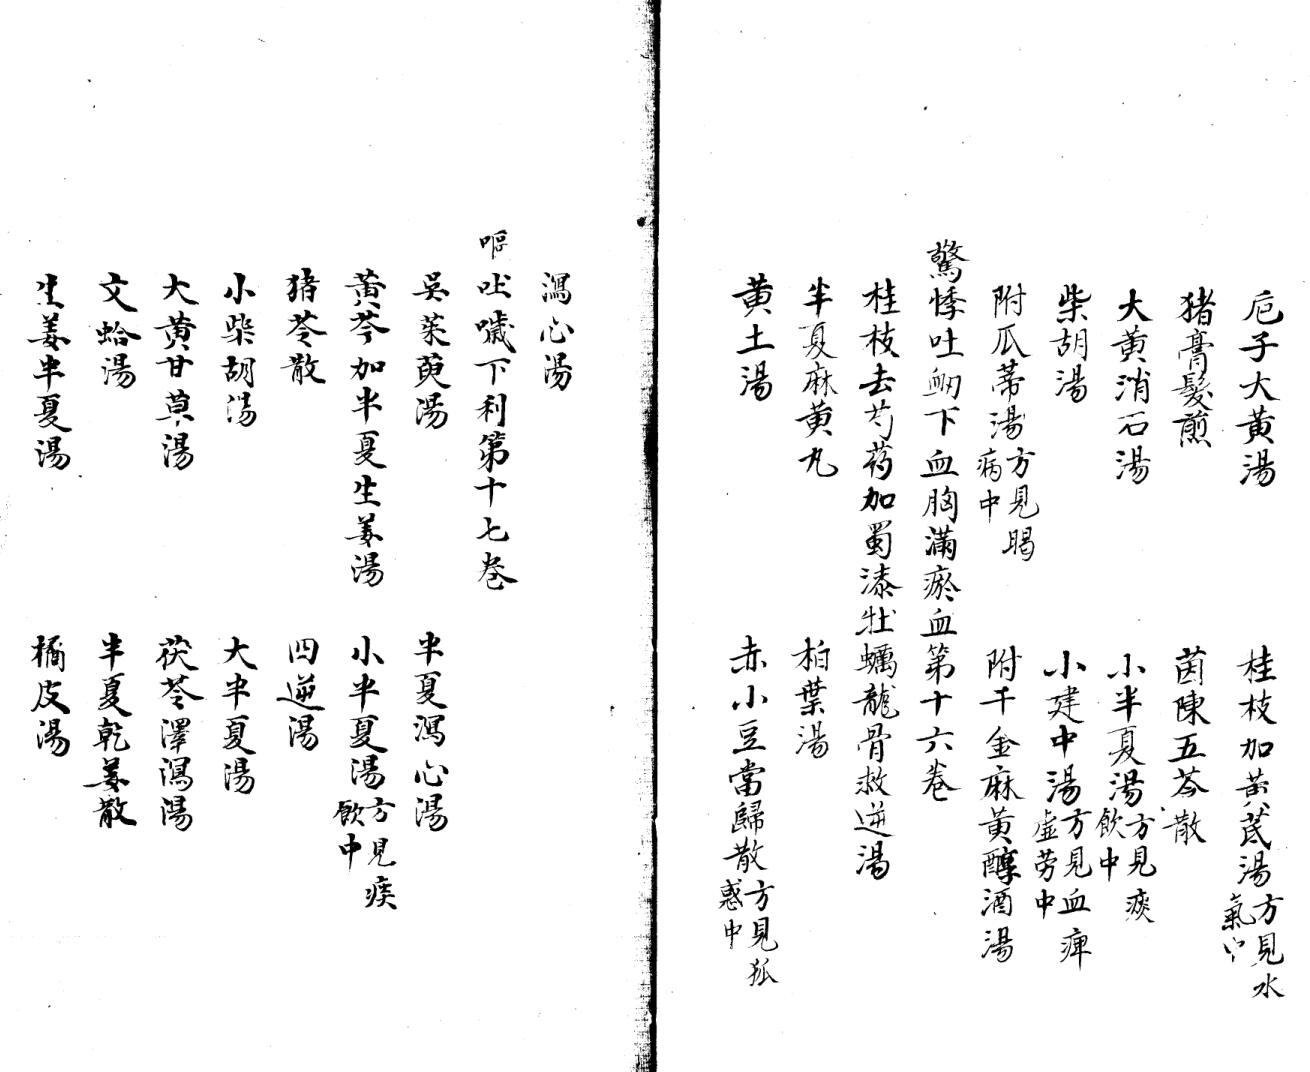 卮子大黄湯　桂枝加黄芪湯方見水氣中
猪膏髮煎　茵陳五苓散
大黄消石湯　小半夏湯方見痰飲中
柴胡湯　小建中湯方見血痺虚劳中
附瓜蒂湯方見暍病中　附千金麻黄醇酒湯
驚悸吐衂下血胸滿瘀血第十六卷
桂枝去芍药加蜀漆牡蠣龍骨救逆湯
半夏麻黄丸　柏葉湯
黄土湯　赤小豆當歸散方見狐惑中
瀉心湯
嘔吐噦下利第十七卷
吳茱萸湯　半夏瀉心湯
黄芩加半夏生姜湯　小半夏湯方見痰飲中
猪苓散　四逆湯
小柴胡湯　大半夏湯
大黄甘草湯　茯苓澤瀉湯
文蛤湯　半夏乾姜散
生姜半夏湯　橘皮湯